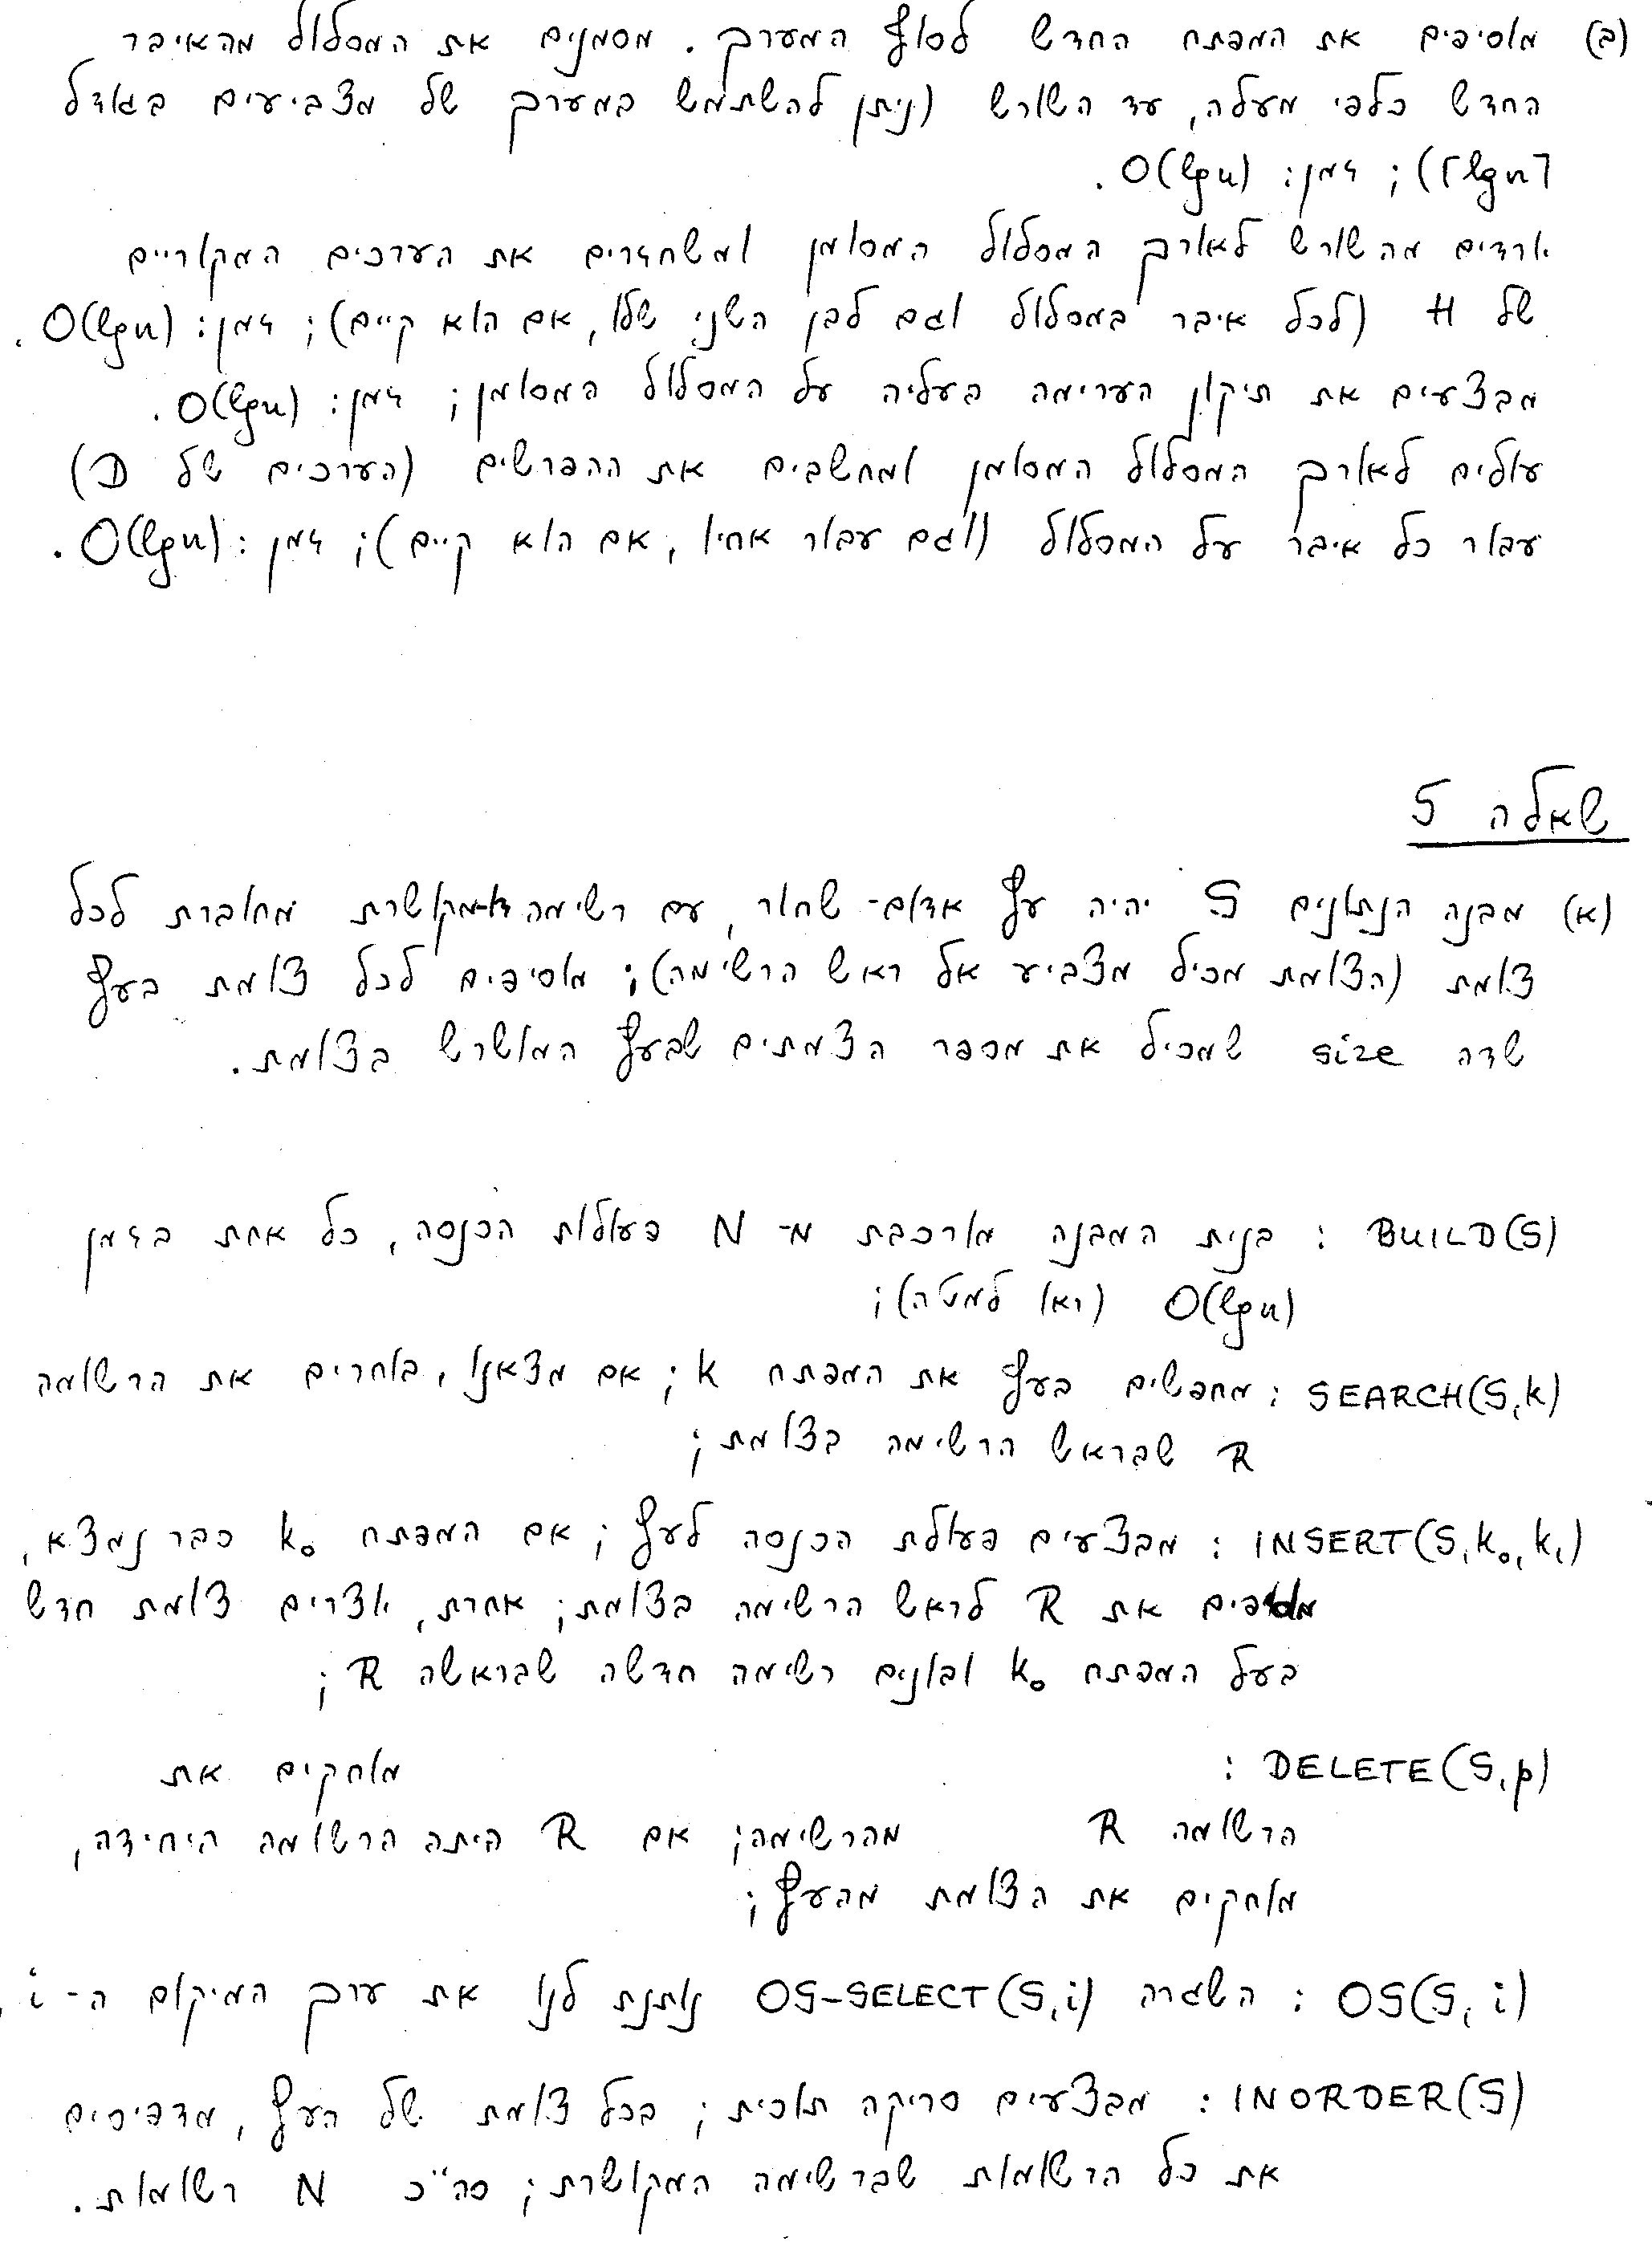 (ב) מוסיפים את המפתח החדש לסוף המערך. מסמנים את המסלול מהאיבר
החדש כלפי מעלה, עד השורש (ניתן להשתמש במערך של מצביעים בגודל
⌈lgn⌉); זמן: O(lgn).
יורדים מהשורש לאורך המסלול המסומן ומשחזרים את הערכים המקוריים
של H (לכל איבר במסלול וגם לבן השני שלו, אם הוא קיים); זמן: O(lgn).
מבצעים את תיקון הערימה בעליה על המסלול המסומן; זמן: O(lgn).
עולים לאורך המסלול המסומן ומחשבים את ההפרשים (הערכים של D)
עבור כל איבר על המסלול (וגם עבור אחיו, אם הוא קיים); זמן: O(lgn).
שאלה 5
(א) מבנה הנתונים S יהיה עץ אדום-שחור, עם רשימה מקושרת מחוברת לכל
צומת (הצומת מכיל מצביע אל ראש הרשימה); מוסיפים לכל צומת בעץ
שדה size שמכיל את מספר הצמתים שבעץ המושרש בצומת.
BUILD(S) : בנית המבנה מורכבת מ-N פעולות הכנסה, כל אחת בזמן
O(lgn) (ראו למטה);
SEARCH(S,k) : מחפשים בעץ את המפתח k; אם מצאנו, בוחרים את הרשומה
R שבראש הרשימה בצומת;
INSERT(S,k₀,k₁) : מבצעים פעולת הכנסה לעץ; אם המפתח k₀ כבר נמצא,
מוסיפים את R לראש הרשימה בצומת; אחרת, יוצרים צומת חדש
בעל המפתח k₀ ובונים רשימה חדשה שבראשה R;
DELETE(S,p) : מוחקים את
הרשומה R מהרשימה; אם R היתה הרשומה היחידה,
מוחקים את הצומת מהעץ;
OS(S,i) : השגרה OS-SELECT(S,i) נותנת לנו את ערך המיקום ה-i,
INORDER(S) : מבצעים סריקה תוכית; בכל צומת של העץ, מדפיסים
את כל הרשומות שברשימה המקושרת; סה"כ N רשומות.